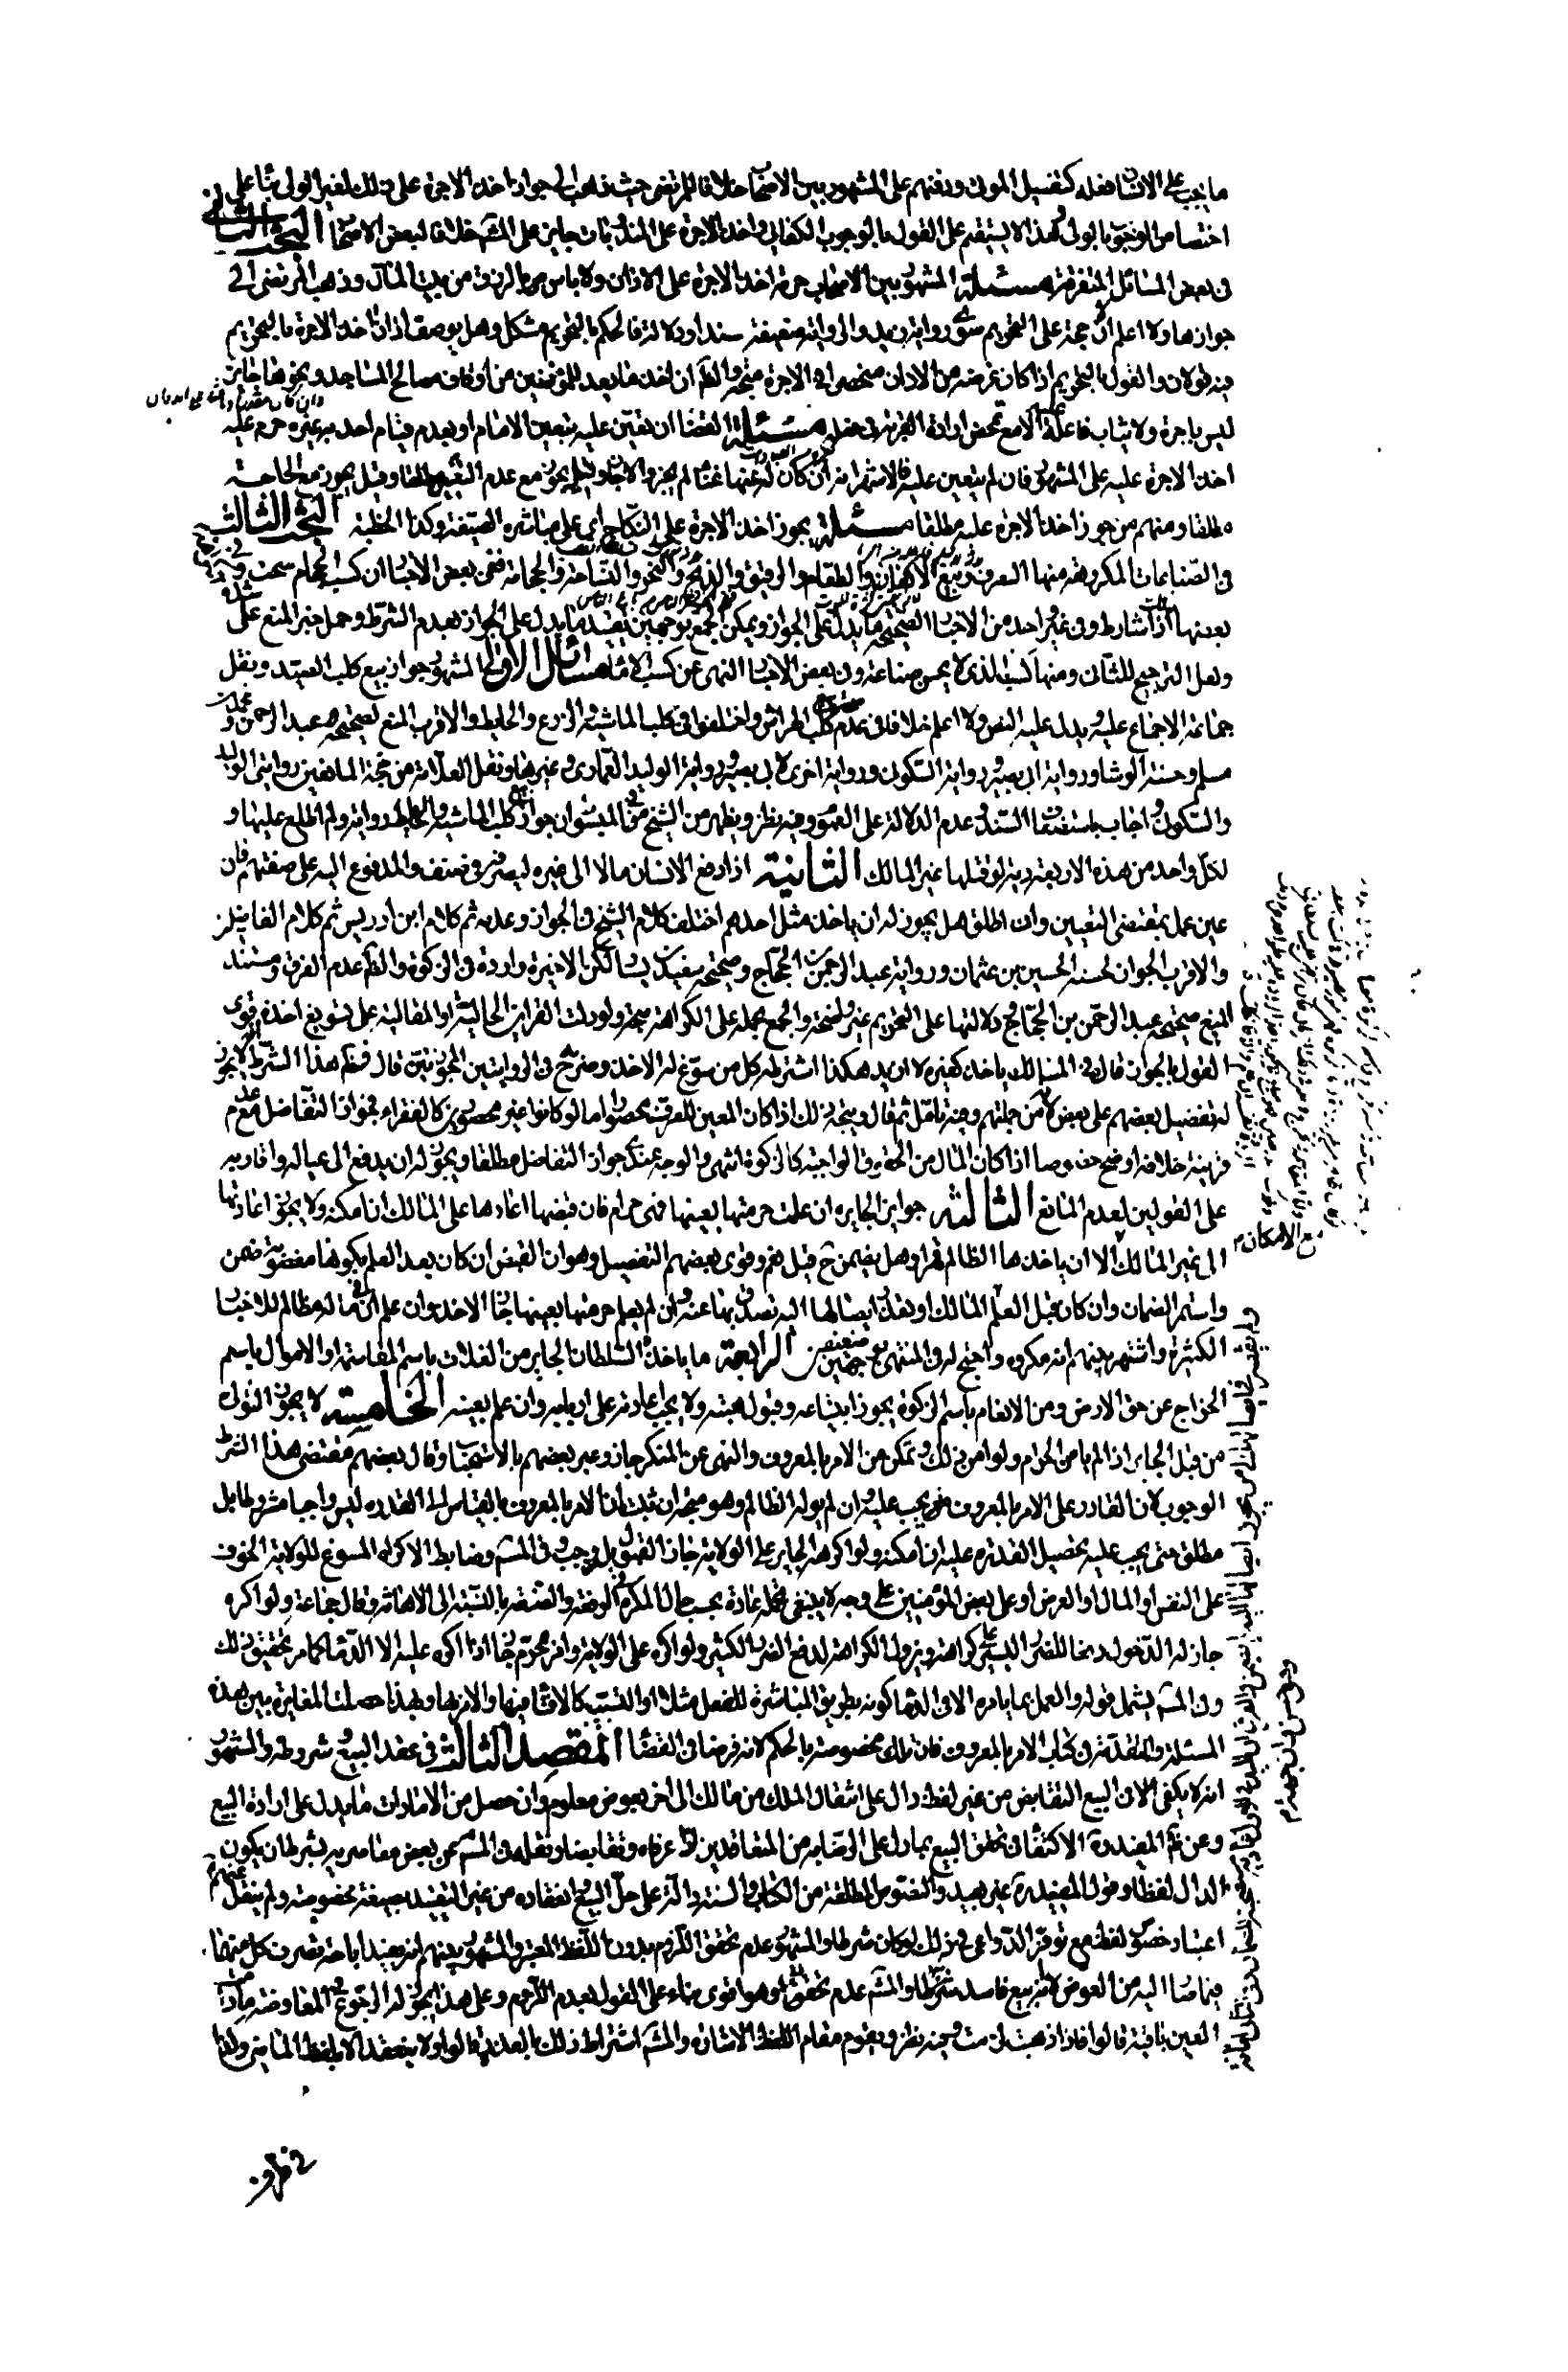 ما يجب على الانسان فعله كتغسيل الموتى ودفنهم على المشهور بين الاصحاب خلافا للمرتضى حيث ذهب الى جواز اخذ الاجرة على ذلك لغير الولى بناء على
اختصاص الوجوب بالولى وهذا لا يستقيم على القول بالوجوب الكفائى وفى اخذ الاجرة على المندوبات جايز على المشهور خلافا لبعض الاصحاب البحث الثانى
فى بعض المسائل المتفرقة مسئلة المشهور بين الاصحاب حرمة اخذ الاجرة على الاذان ولا باس بالرزق من بيت المال وذهب المرتضى الى
جوازها ولا اعلم حجة على التحريم سوى رواية زيد والرواية ضعيفة سندا ودلالة فالحكم بالتحريم مشكل وهل يوصف اذان اخذ الاجرة بالتحريم
فيه قولان والقول بالتحريم اذا كان غرضه من الاذان منحصرا فى الاجرة متجه والظاهر ان اخذ ما يعد للمؤذنين من اوقاف مصالح المساجد ونحوها جايز
ليس باجرة ولا يثاب فاعله الا مع تمحض ارادة القربة فى فعله مسئلة القضا ان تعين عليه بتعيين الامام او بعدم قيام احد به غيره حرم عليه
اخذ الاجرة عليه على المشهور فان لم يتعين عليه فالاشهر انه ان كان له عنها غنا لم يجز والا جاز وقيل يجوز مع عدم التعيين مطلقا وقيل يجوز مع الحاجة
مطلقا ومنهم من جوز اخذ الاجرة عليه مطلقا مسئلة يجوز اخذ الاجرة على النكاح اى على مباشرة الصيغة وكذا الخطبة البحث الثالث
فى الصناعات المكروهة منها الصرف وبيع الاكفان والطعام والرقيق والذبح والنحر والنساجة والحجامة ففى بعض الاخبار ان كسب الحجام سحت وفى
بعضها اذا شارط وفى غير واحد من الاخبار الصحيحة ما يدل على الجواز ويمكن الجمع بوجهين تقييد ما يدل على الجواز بعدم الشرط وحمل خبر المنع على
ولعل الترجيح للثانى ومنها كسب الذى لا يحسن صناعة وفى بعض الاخبار النهى عن كسب الاماء مسائل الاولى المشهور جواز بيع كلب الصيد ونقل
جماعة الاجماع عليه ويدل عليه النص ولا اعلم خلافا فى عدم كلب الهراش واختلفوا فى كلب الماشية والزرع والحايط والاقرب المنع لصحيحة عبد الرحمن و
مسلم وحسنة الوشا ورواية ابى بصير ورواية السكونى ورواية اخرى لابى بصير ورواية الوليد العمارى وغيرها ونقل العلامة من حجة المانعين روايتى الوليد
والسكونى واجاب باستضعاف السند وعدم الدلالة على العموم وفيه نظر ويظهر من الشيخ فى المبسوط ان جواز كلب الماشية والحايط رواية ولم اطلع عليها و
لكل واحد من هذه الاربعة دية لو قتلها غير المالك الثانية اذا دفع الانسان مالا الى غيره ليصرفه فى صنف والمدفوع اليه على صفتهم فان
عين عمل بمقتضى التعيين وان اطلق هل يجوز له ان ياخذ مثل احدهم اختلف كلام الشيخ فى الجواز وعدمه ثم كلام ابن ادريس ثم كلام الفاضلين
والاقرب الجواز لحسنة الحسين بن عثمان ورواية عبد الرحمن بن الحجاج وصحيحة سعيد بن يسار لكن الاخيرة واردة فى الزكوة والظاهر عدم الفرق ومستند
المنع صحيحة عبد الرحمن بن الحجاج ودلالتها على التحريم غير واضحة والجمع بحمله على الكراهة متجه ولو دلت القراين الحالية او المقالية على تسويغ اخذه قوى
القول بالجواز قال فى المسالك ياخذ كغيره لا ازيد هكذا اشترطه كل من سوغ له الاخذ وصرح فى الروايتين المجوزتين قال فعلم هذا الشرط لا يجوز
له تفضيل بعضهم على بعض لانه من جملتهم وفيه تامل ثم قال ويتجه ذلك اذا كان المعين للصرف محصورا اما لو كانوا غير محصورين كالفقراء فجواز التفاضل مع عدم
قرينة خلافه اوضح خصوصا اذا كان المال من الحقوق الواجبة كالزكوة انتهى والوجه عندى جواز التفاضل مطلقا ويجوز له ان يدفع الى عياله واقاربه
على القولين لعدم المانع الثالثة جوايز الجاير ان علمت حرمتها بعينها فهى حرام فان قبضها اعادها على المالك ان امكنه ولا يجوز اعادتها
الى غير المالك الا ان ياخذها الظالم قهرا وهل يضمن ح قيل نعم وقوى بعضهم التفصيل وهو ان القبض ان كان بعد العلم بكونها مغصوبة ضمن
واستمر الضمان وان كان قبل العلم المالك او تعذر ايصالها اليه تصدق بها عنه وان لم يعلم حرمتها بعينها جاز الاخذ وان علم ان فى ماله مظالم للاخبار
الكثيرة واشتهر بينهم انه مكروه واحتج له فى المنتهى بوجهين ضعيفين الرابعة ما ياخذه السلطان الجاير من الغلات باسم المقاسمة او الاموال باسم
الخراج عن حق الارض ومن الانعام باسم الزكوة يجوز ابتياعه وقبول هبته ولا يجب اعادته على اربابه وان علم بعينه الخامسة لا يجوز التولى
من قبل الجاير اذا لم يامن الحرام ولو امن ذلك وتمكن من الامر بالمعروف والنهى عن المنكر جاز وعبر بعضهم بالاستحباب وقال بعضهم مقتضى هذا الشرط
الوجوب لان القادر على الامر بالمعروف يجب عليه وان لم يوله الظالم وهو متجه ان ثبت ان الامر بالمعروف بالقياس الى القدرة ليس واجبا مشروطا بل
مطلق حتى يجب عليه تحصيل القدرة عليه ان امكنه ولو اكرهه الجاير على الولاية جاز القبول بل وجب فى المشهور وضابط الاكراه المسوغ للولاية الخوف
على النفس او المال او العرض او على بعض المؤمنين على وجه لا ينبغى تحمله عادة بحسب حال المكره فى الرفعة والضعة بالنسبة الى الاهانة وقال جماعة ولو اكره
جاز له الدخول دفعا للضرر اليسير على كراهة وتزول الكراهة لدفع الضرر الكثير ولو اكره على الولاية وامر بمحرم جاز اذا اكره عليه الا الدما كما مر تحقيق ذلك
وفى المشهور يشمل قوله والعمل بما يامره الا فى الدما كونه بطريق المباشرة للفعل مثلا او التسبب كالافتا فيها والامر بها وبهذا حصلت المغايرة بين هذه
المسئلة والمتقدمة فى كتاب الامر بالمعروف فان تلك مخصوصة بالحكم لانه فرضها فى القضا المقصد الثالث فى عقد البيع وشروطه والمشهور
انه لا يكفى فى البيع التقابض من غير لفظ دال على انتقال الملك من مالك الى اخر بعوض معلوم وان حصل من الامارات ما يدل على ارادة البيع
وعن المفيد الاكتفا فى تحقق البيع بما دل على الرضا به من المتعاقدين اذا عرفاه وتقابضا ونقل فى المسالك عن بعض معاصريه بشرط ان يكون
الدال لفظا وقول المفيد غير بعيد والنصوص المطلقة من الكتاب والسنة دالة على حل البيع وانعقاده من غير التقييد بصيغة مخصوصة ولم ينقل
اعتبار خصوص لفظ مع توفر الدواعى فى ذلك لو كان شرطا والمشهور عدم تحقق اللزوم بدون اللفظ المعتبر والمشهور بينهم انه يفيد اباحة تصرف كل منهما
فيما صار اليه من العوض لا انه بيع فاسد والمشهور عدم تحقق وهو اقوى بناء على القول بعدم اللزوم وعلى هذا يجوز له الرجوع فى المعاوضة ما دامت
العين باقية قالوا فاذا ذهبت لزمت وفيه نظر ويقوم مقام اللفظ الاشارة والمشهور اشتراط ذلك بالعذر قالوا ولا ينعقد الا بلفظ الماضى ولو
مع الامكان